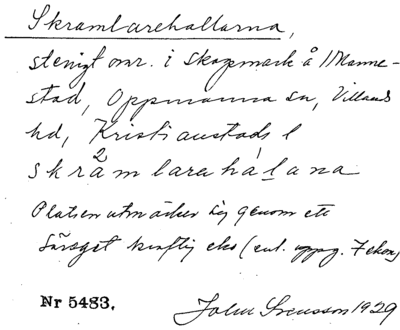 Skramlarehallarna,
stenigt omr. i skogsmark å Manne-
stad, Oppmanna sn, Villands
hd, Kristianstads l
skråmlarehálana
2
Platsen utmärker sig genom ett
särsk. kraftig eko (enl. uppg. 7 ekon)
Nr 5483.
John Svensson 1929